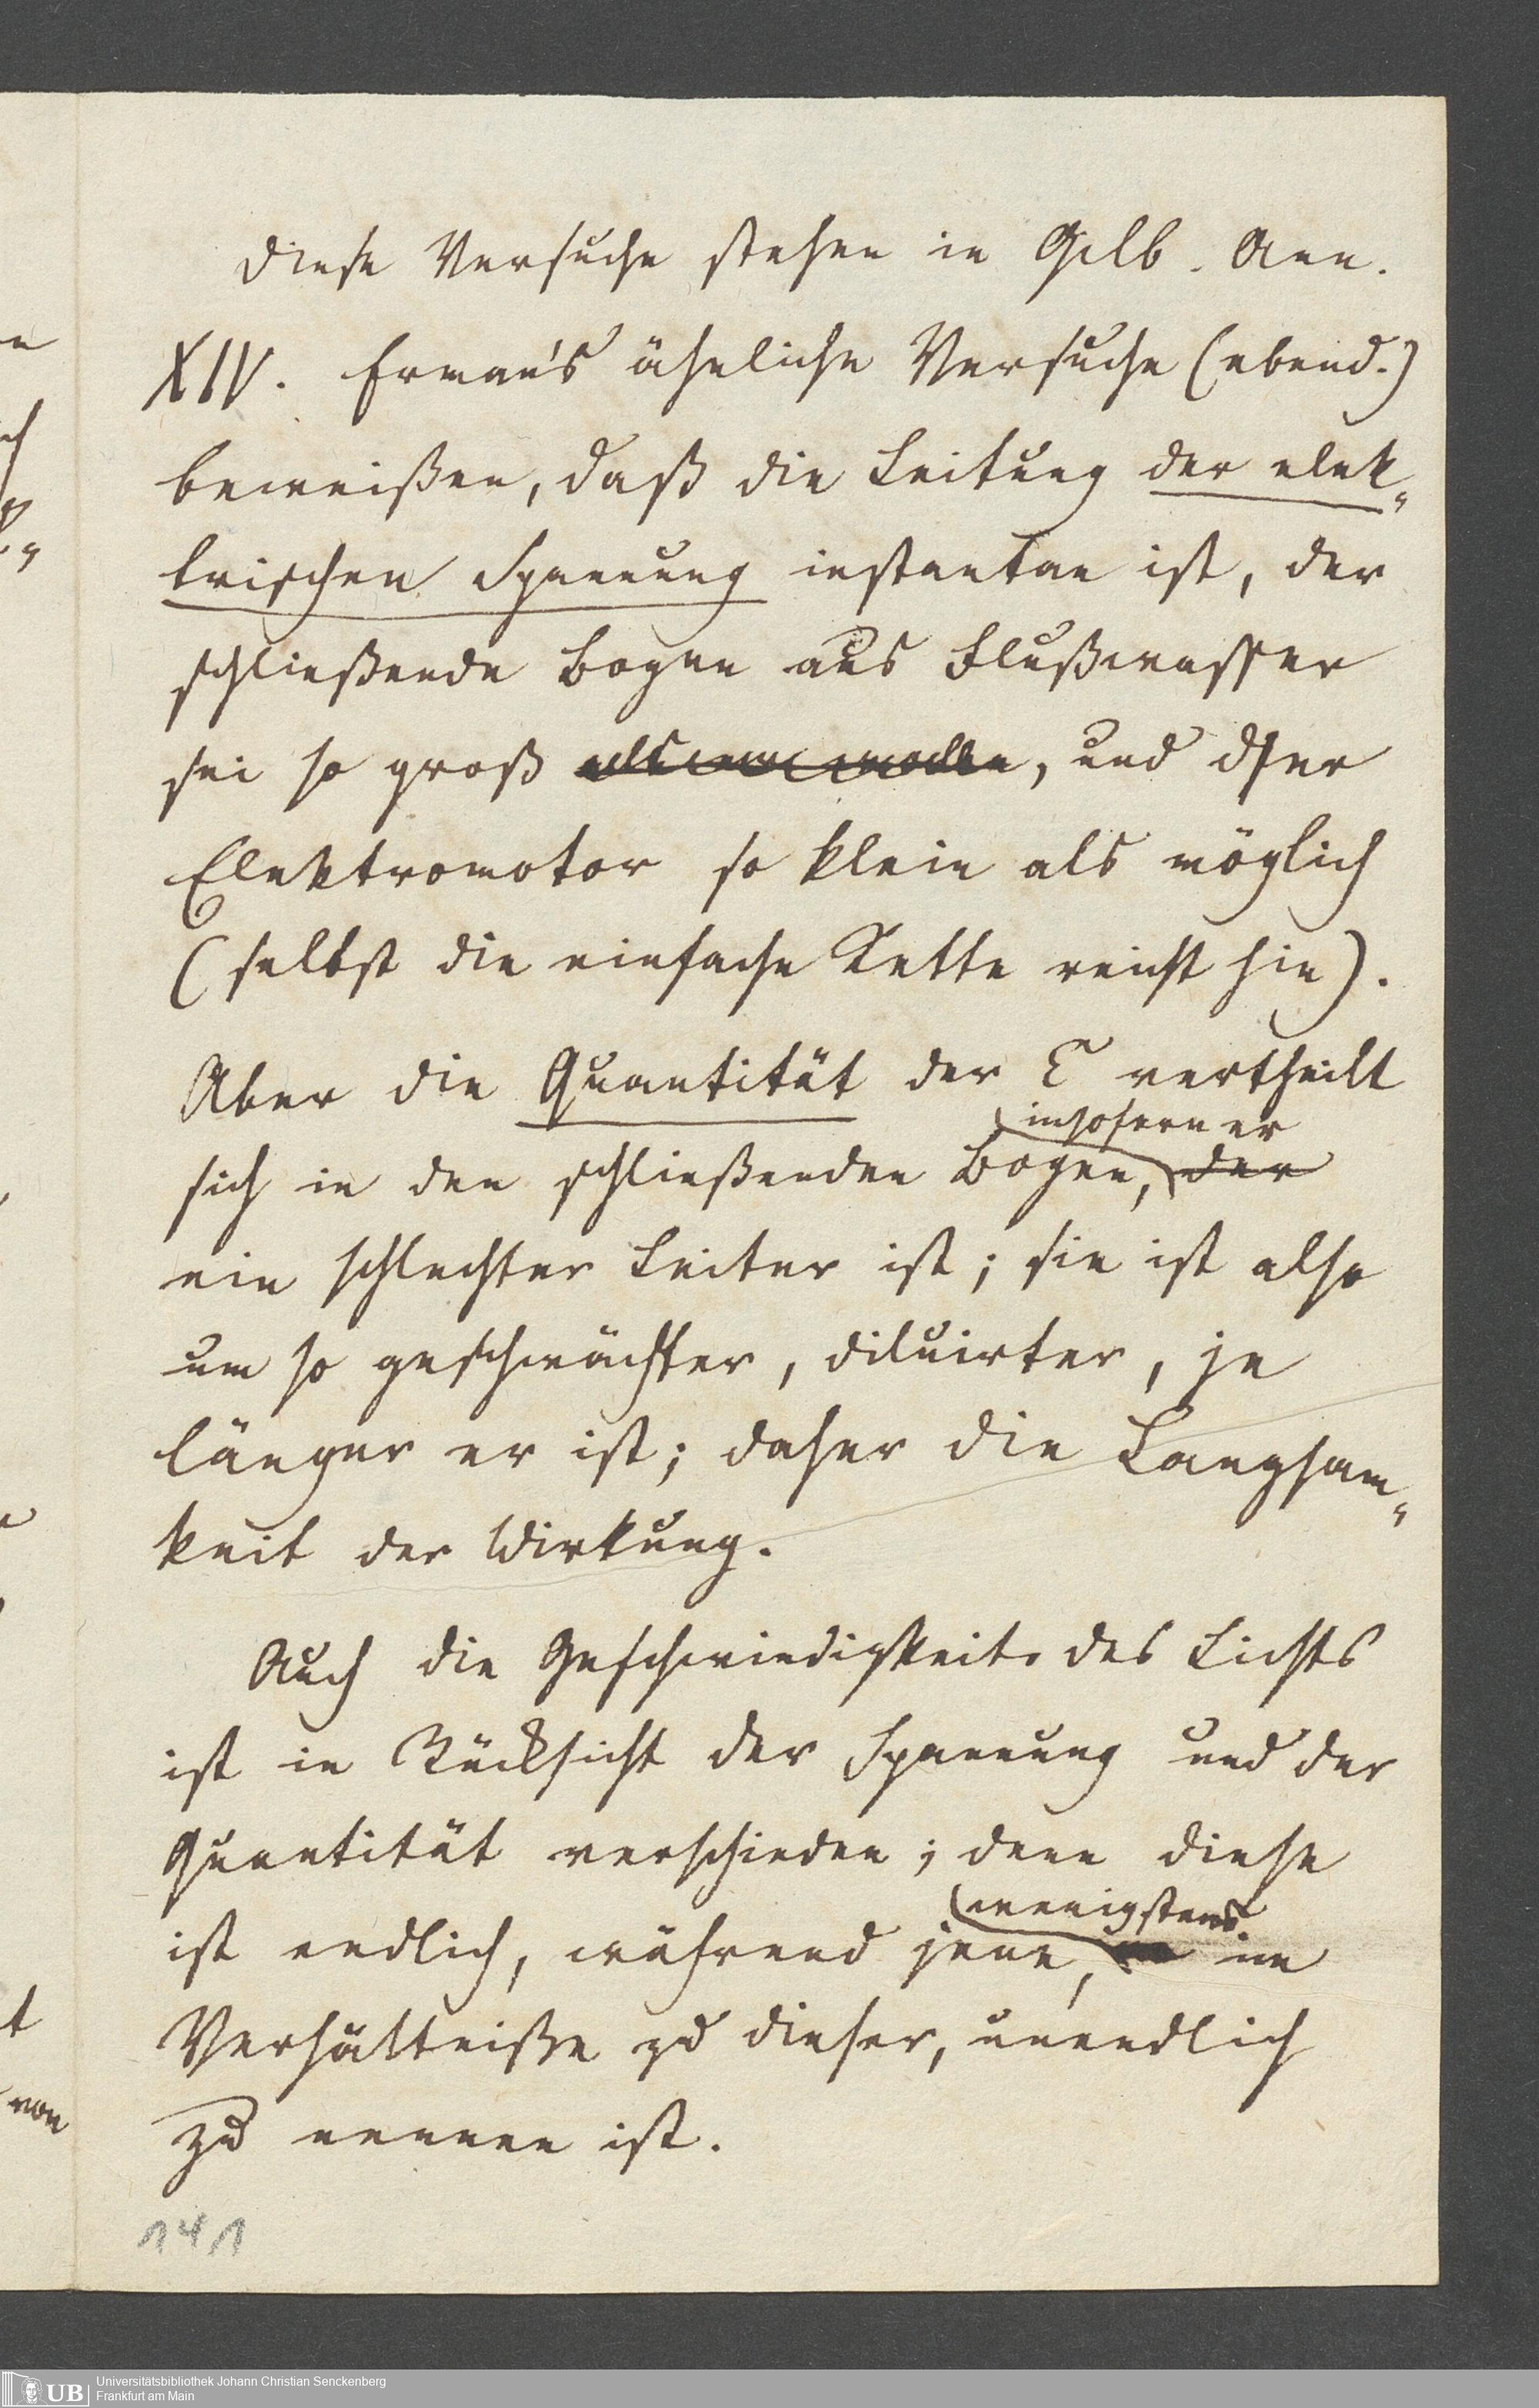 Diese Versuche stehen in Gilb. Ann.
XIV. Erman's ähnliche Versuche (ebend.)
beweißen, daß die Leitung der elek„
trischen Spannung instantan ist, der
schließende Bogen aus Flußwasser
sei so groß als man wolle, und der
Elektromotor so klein als möglich
(selbst die einfache Kette reicht hin).
Aber die Quantität der E vertheilt
insofern er
sich in den schließenden Bogen, der
ein schlechter Leiter ist; sie ist also
um so geschwächter, diluirter, je
länger er ist; daher die Langsam„
keit der Wirkung.
Auch die Geschwindigkeit des Lichts
ist in Rücksicht der Spannung und der
Quantität verschieden; denn diese
wenigstens
ist endlich, während jene, im
Verhältniße zu dieser, unendlich
zu nennen ist.
141
n
t
von
UB
Universitätsbibliothek Johann Christian Senckenberg
Frankfurt am Main